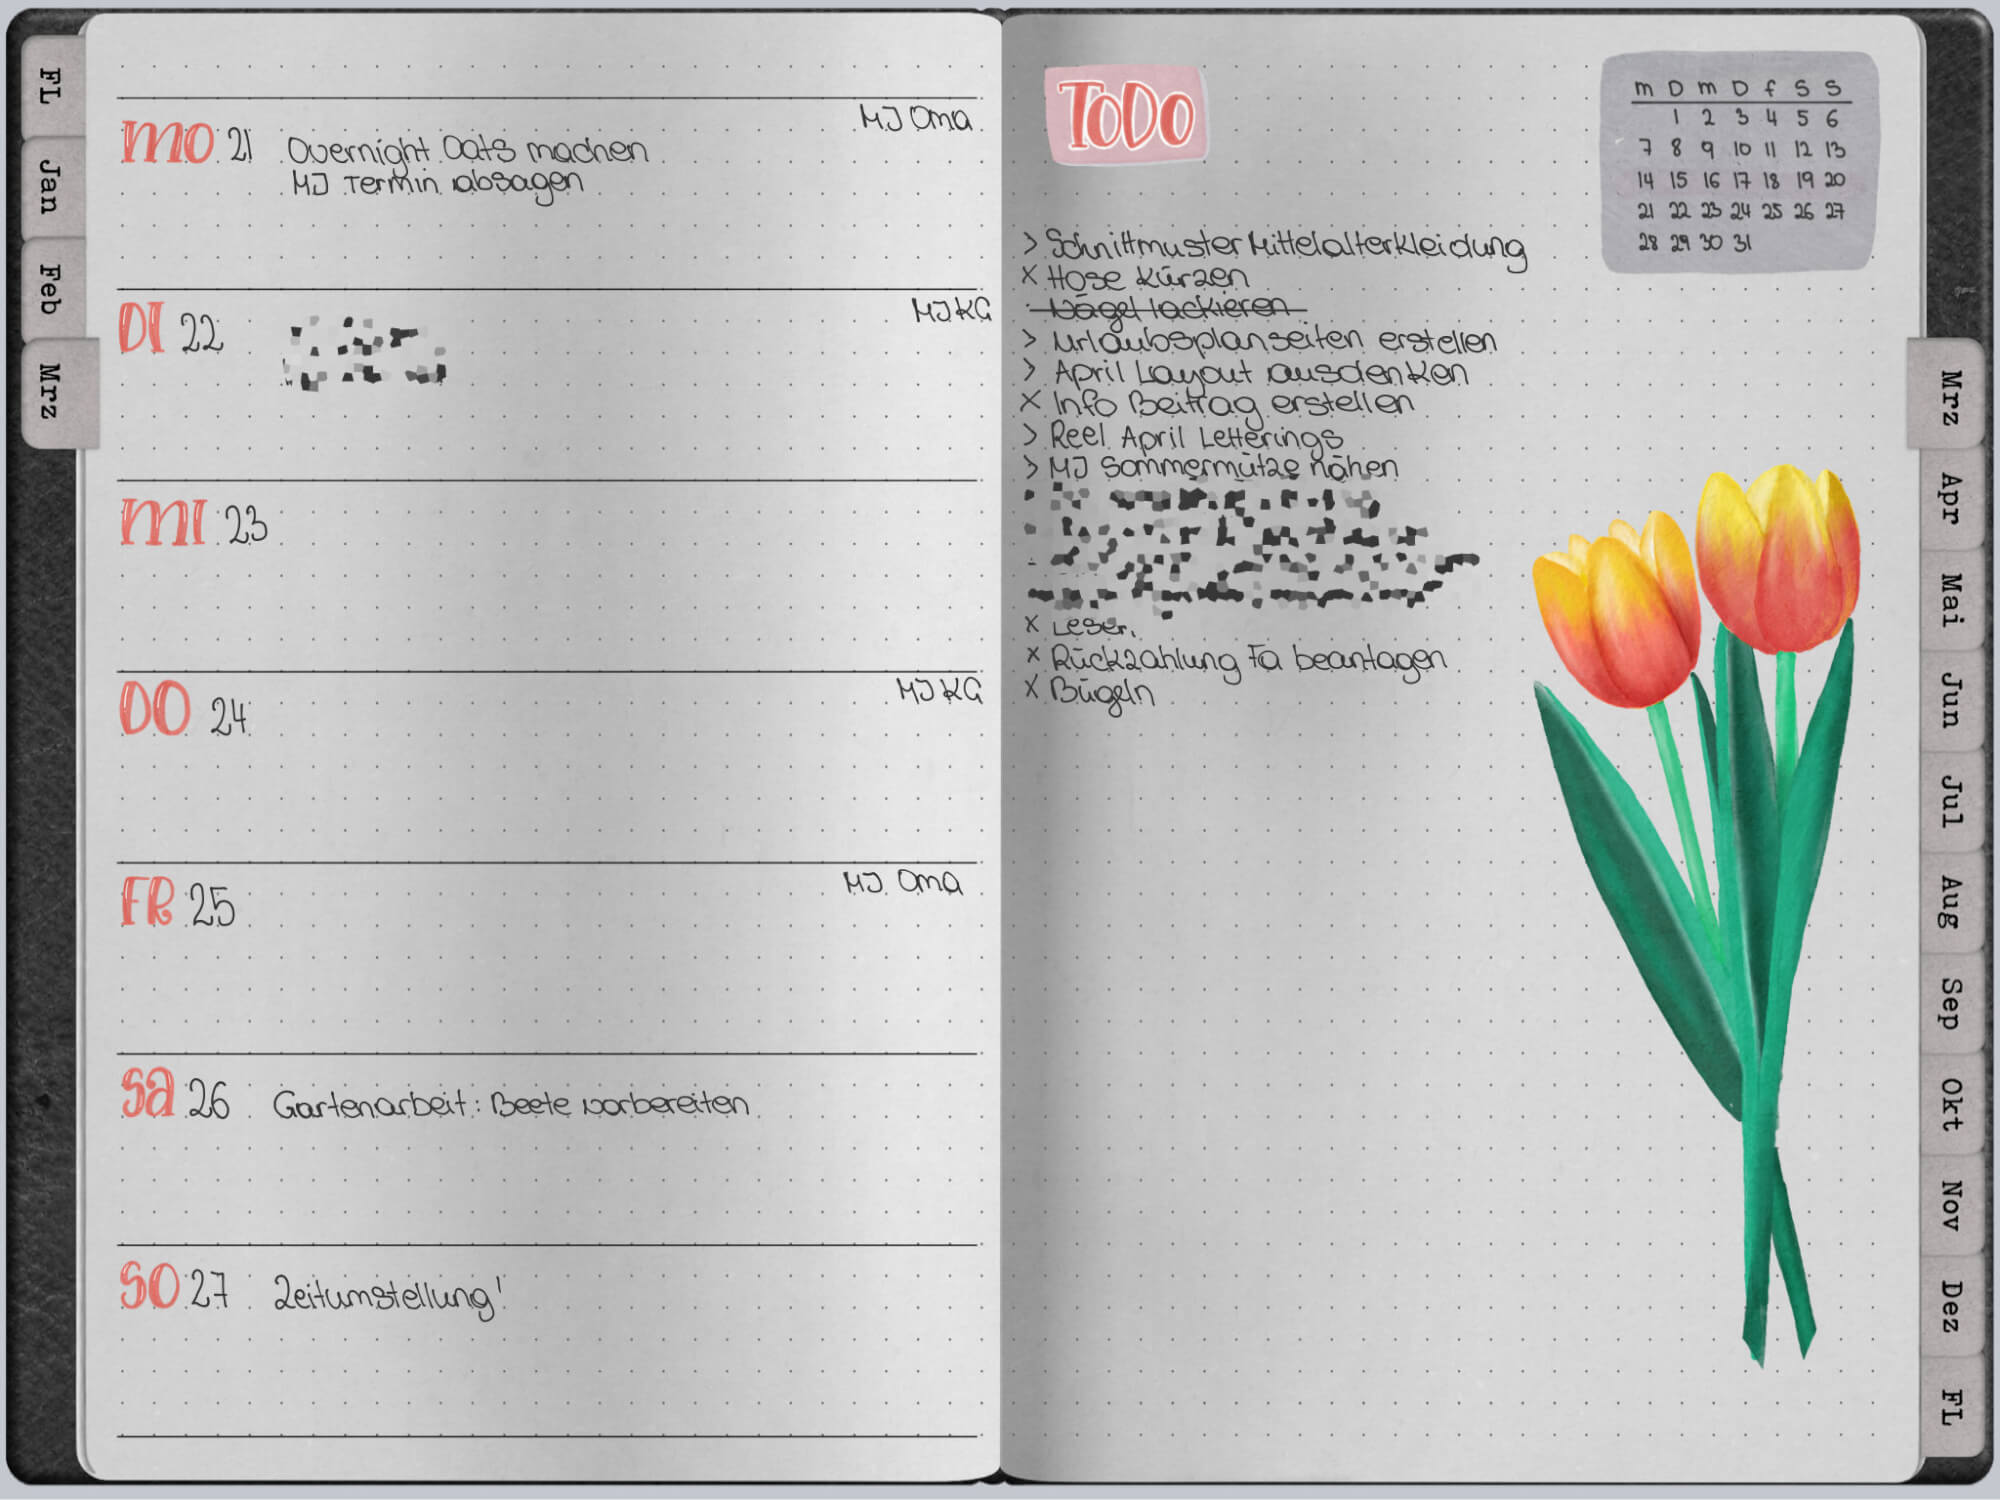 FL
Jan
Feb
Mrz
MO 21
MJ Oma
Overnight Oats machen
MJ Termin absagen
DI 22
MJ KG
MI 23
DO 24
MJ KG
FR 25
MJ Oma
SA 26
Gartenarbeit: Beete vorbereiten
SO 27
Zeitumstellung!
ToDo
> Schnittmuster Mittelalterkleidung
x Hose kürzen
· Nägel lackieren
> Urlaubsplanseiten erstellen
> April Layout ausdenken
x Info Beitrag erstellen
> Reel April Letterings
> MJ Sommermütze nähen
x Lesen
x Rückzahlung Fa beantagen
x Bügeln
m D m D f S S
1 2 3 4 5 6
7 8 9 10 11 12 13
14 15 16 17 18 19 20
21 22 23 24 25 26 27
28 29 30 31
Mrz
Apr
Mai
Jun
Jul
Aug
Sep
Okt
Nov
Dez
FL